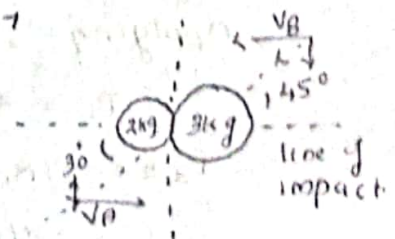 VB
45°
2kg 3kg
line of
impact
30
VA